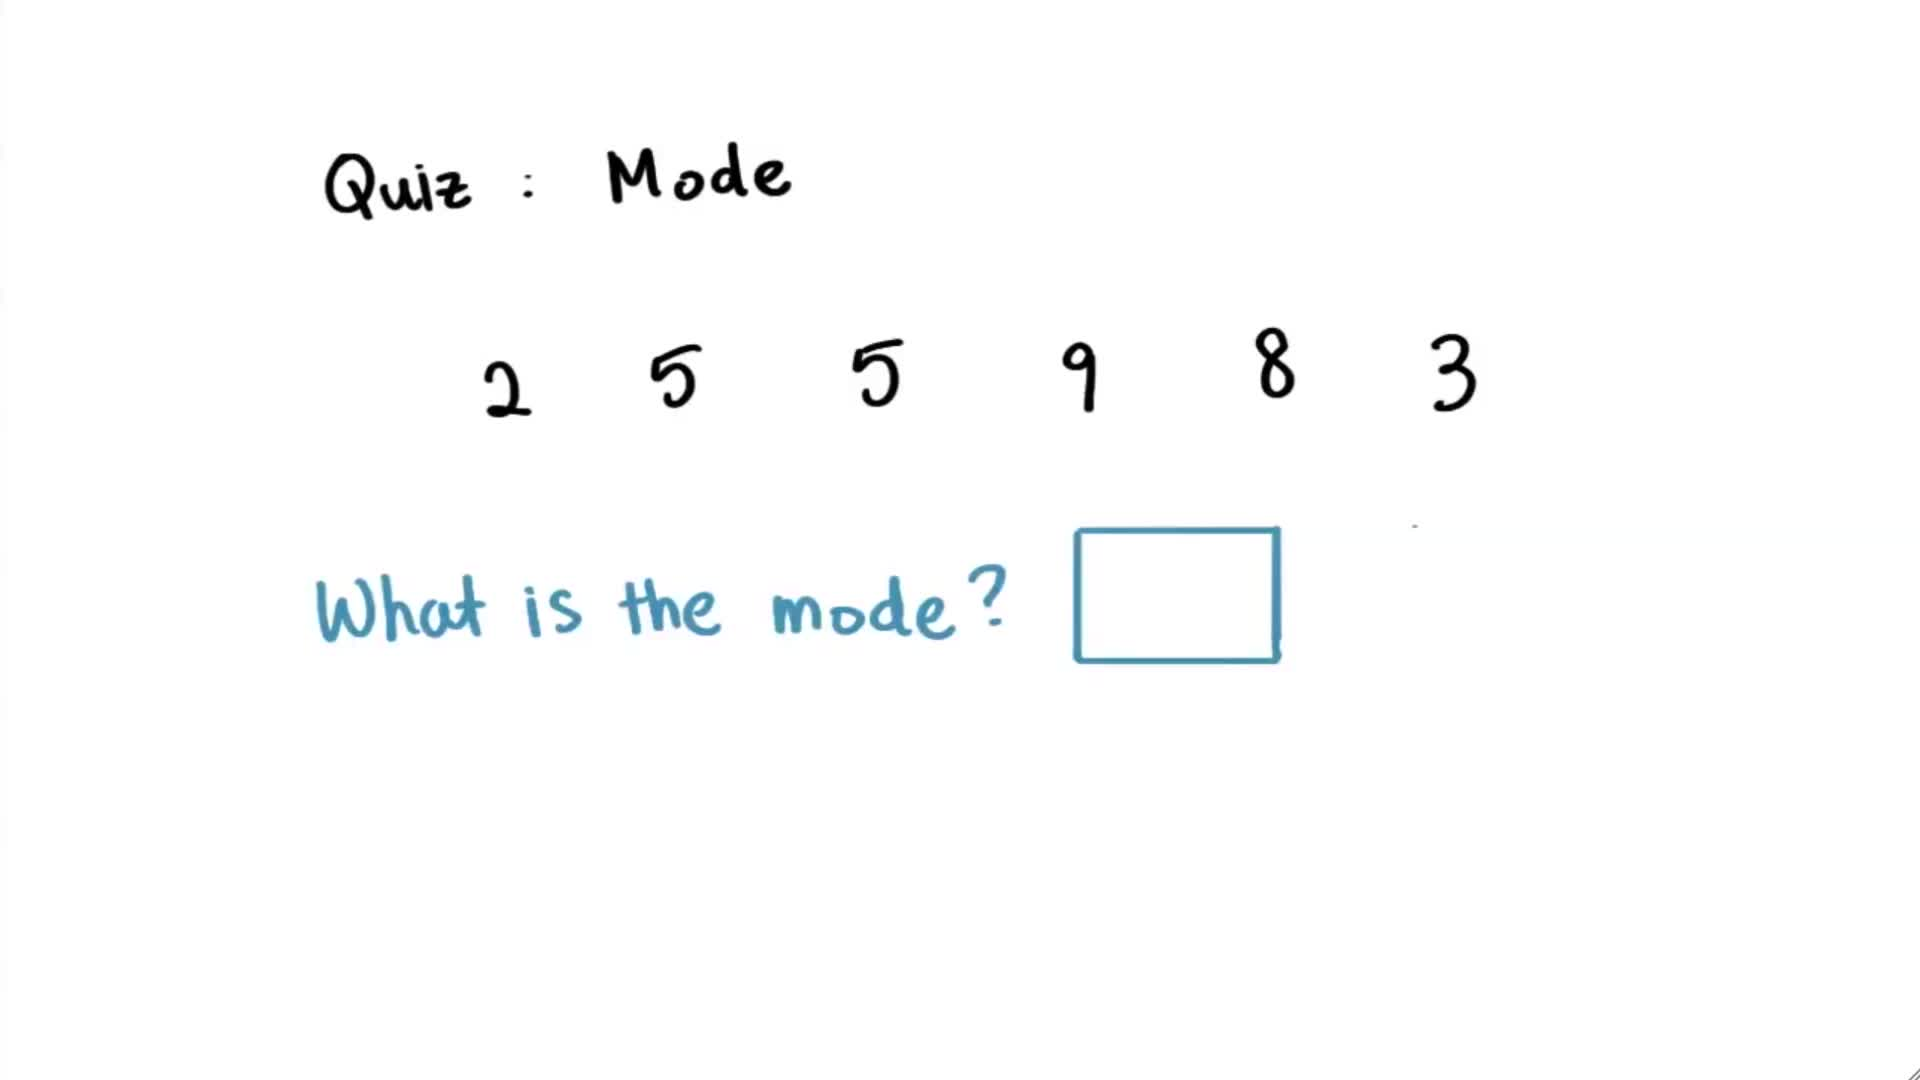 Quiz : Mode
2 5 5 9 8 3
What is the mode?